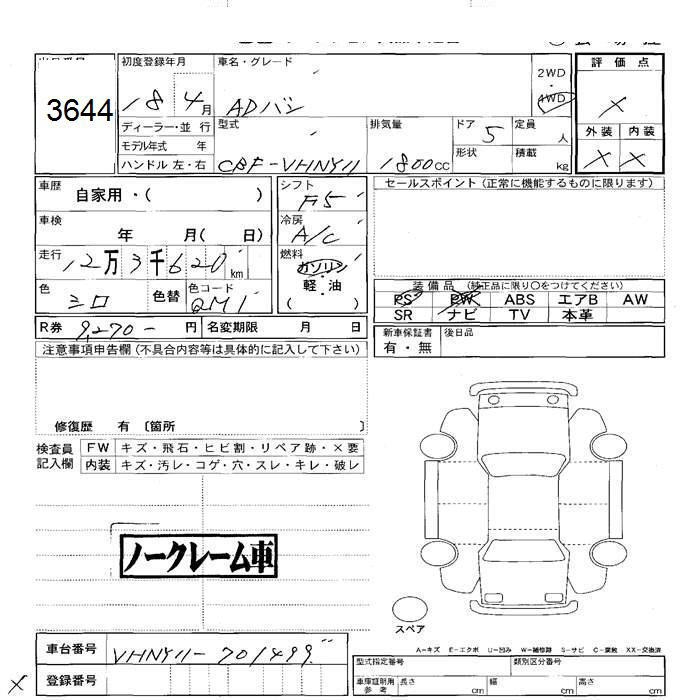 3644
初度登録年月
18 4月
車名・グレード
ADバン
2WD
4WD
評価点
×
外装 内装
× ×
ディーラー・並行
モデル年式 年
ハンドル 左・右
型式
CBF-VHNY11
排気量
1800CC
ドア 5
定員 人
形状
積載 kg
車歴
自家用・( )
シフト
F5
セールスポイント(正常に機能するものに限ります)
車検
年 月( 日)
冷房
A/C
走行
12万3千620km
燃料
ガソリン
軽・油
( )
色
シロ
色替
色コード
QM1
装備品 (純正品に限り○をつけてください)
PS PW ABS エアB AW
SR ナビ TV 本革
R券 9,270- 円
名変期限 月 日
新車保証書
有・無
後日品
注意事項申告欄(不具合内容等は具体的に記入して下さい)
修復歴 有 〔箇所 〕
検査員
記入欄
FW キズ・飛石・ヒビ割・リペア跡・×要
内装 キズ・汚レ・コゲ・穴・スレ・キレ・破レ
ノークレーム車
スペア
A-キズ E-エクボ U-凹み W-補修跡 S-サビ C-腐蝕 XX-交換済
車台番号
VHNY11-701499
× 登録番号
型式指定番号
類別区分番号
車庫証明用
参考
長さ cm 幅 cm 高さ cm